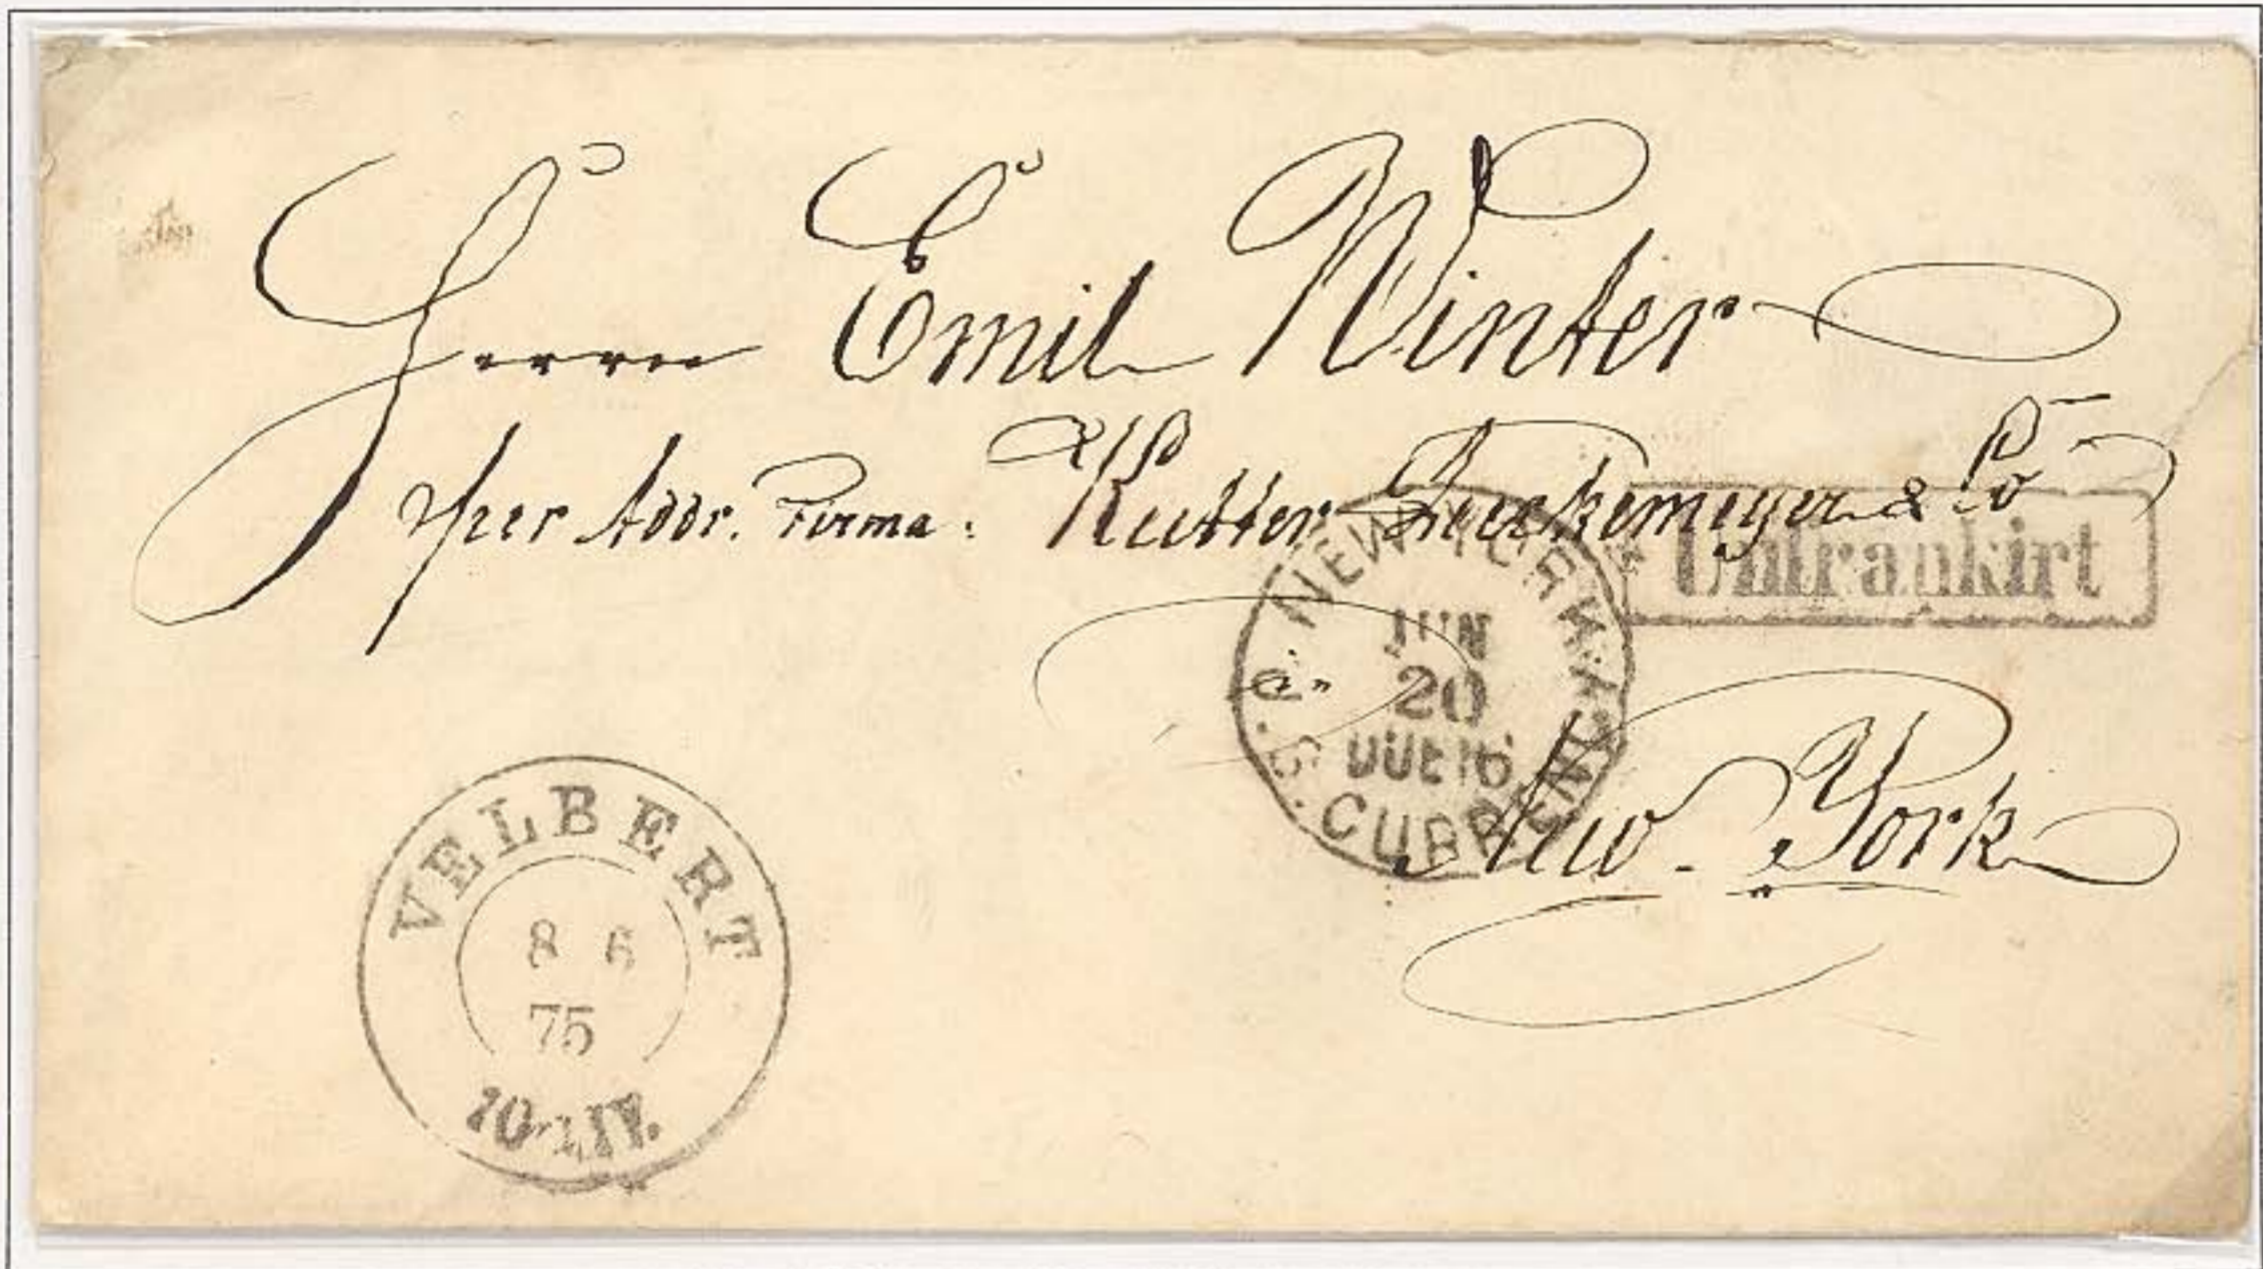 Herrn Emil Winter
per Addr. Firma: Kutter Luckemeyer & Co
Unfrankirt
NEW YORK
JUN
20
DUE 16
U.S. CURRENCY
New-York
VELBERT
8 6
75